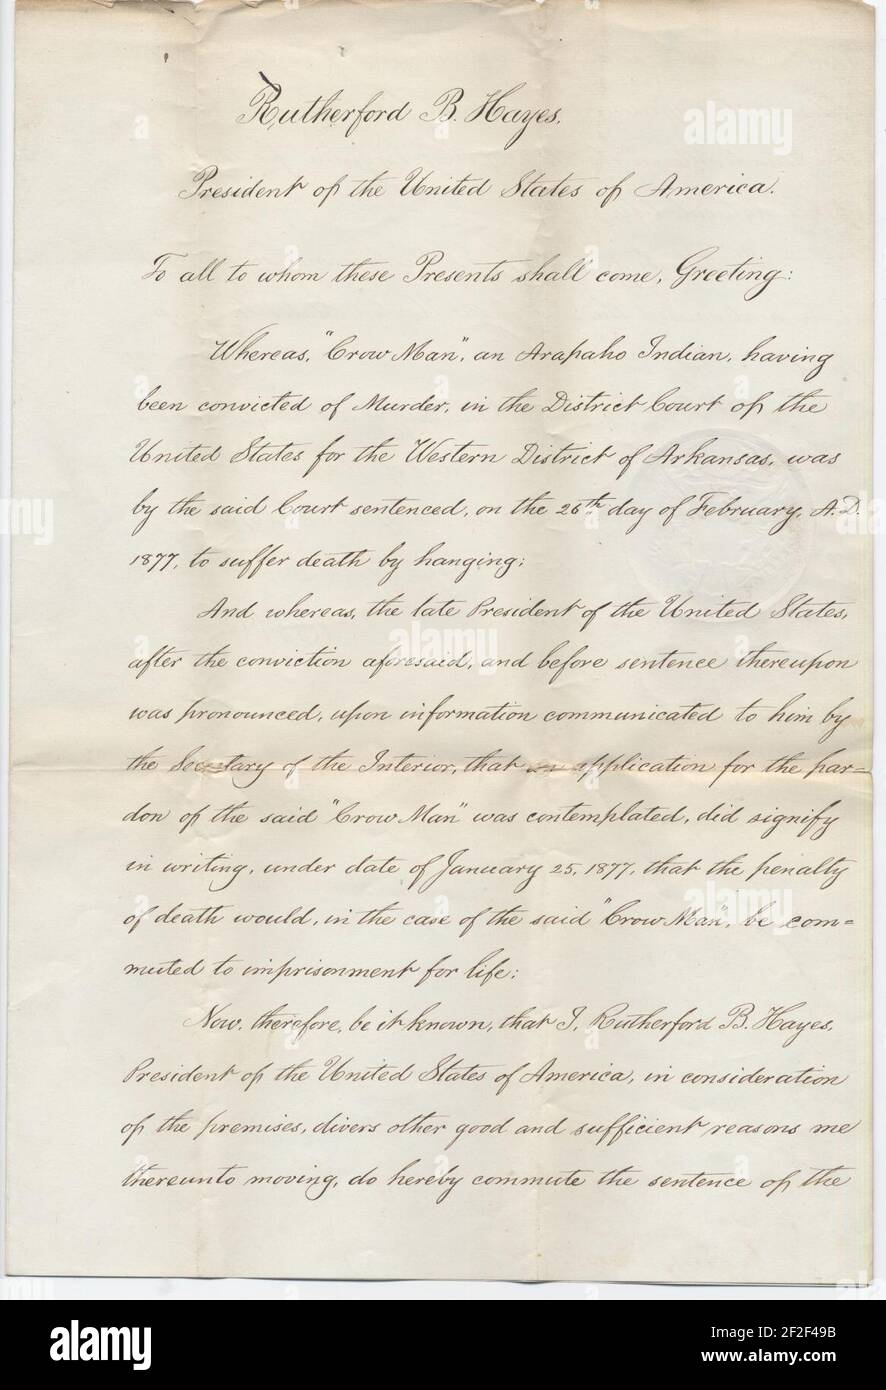 Rutherford B. Hayes,
President of the United States of America.
To all to whom these Presents shall come, Greeting:
Whereas, "Crow Man", an Arapaho Indian, having
been convicted of Murder, in the District Court of the
United States for the Western District of Arkansas, was
by the said Court sentenced, on the 26th day of February, A.D.
1877, to suffer death by hanging;
And whereas, the late President of the United States,
after the conviction aforesaid, and before sentence thereupon
was pronounced, upon information communicated to him by
the Secretary of the Interior, that an application for the par=
don of the said "Crow Man" was contemplated, did signify
in writing, under date of January 25, 1877, that the penalty
of death would, in the case of the said "Crow Man", be com=
muted to imprisonment for life:
Now, therefore, be it known, that I, Rutherford B. Hayes,
President of the United States of America, in consideration
of the premises, divers other good and sufficient reasons me
thereunto moving, do hereby commute the sentence of the
alamy
Image ID: 2F2F49B
www.alamy.com